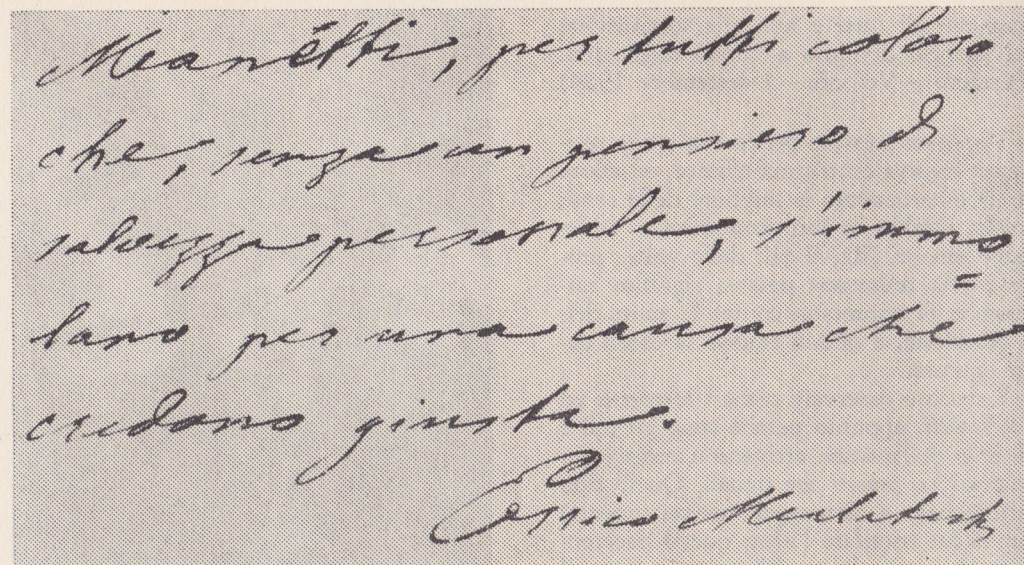 Mariotti, per tutti coloro
che, senza un pensiero di
salvezza personale, s'immo=
lano per una causa che
credono giusta.
Errico Malatesta